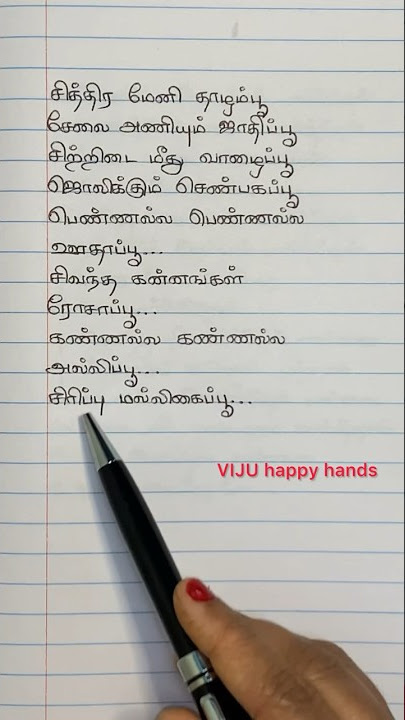 சித்திர மேனி தாழம்பூ
சேலை அணியும் ஜாதிப்பூ
சிற்றிடை மீது வாழைப்பூ
ஜொலிக்கும் செண்பகப்பூ
பெண்ணல்ல பெண்ணல்ல
ஊதாப்பூ...
சிவந்த கன்னங்கள்
ரோசாப்பூ...
கண்ணல்ல கண்ணல்ல
அல்லிப்பூ...
சிரிப்பு மல்லிகைப்பூ...
VIJU happy hands